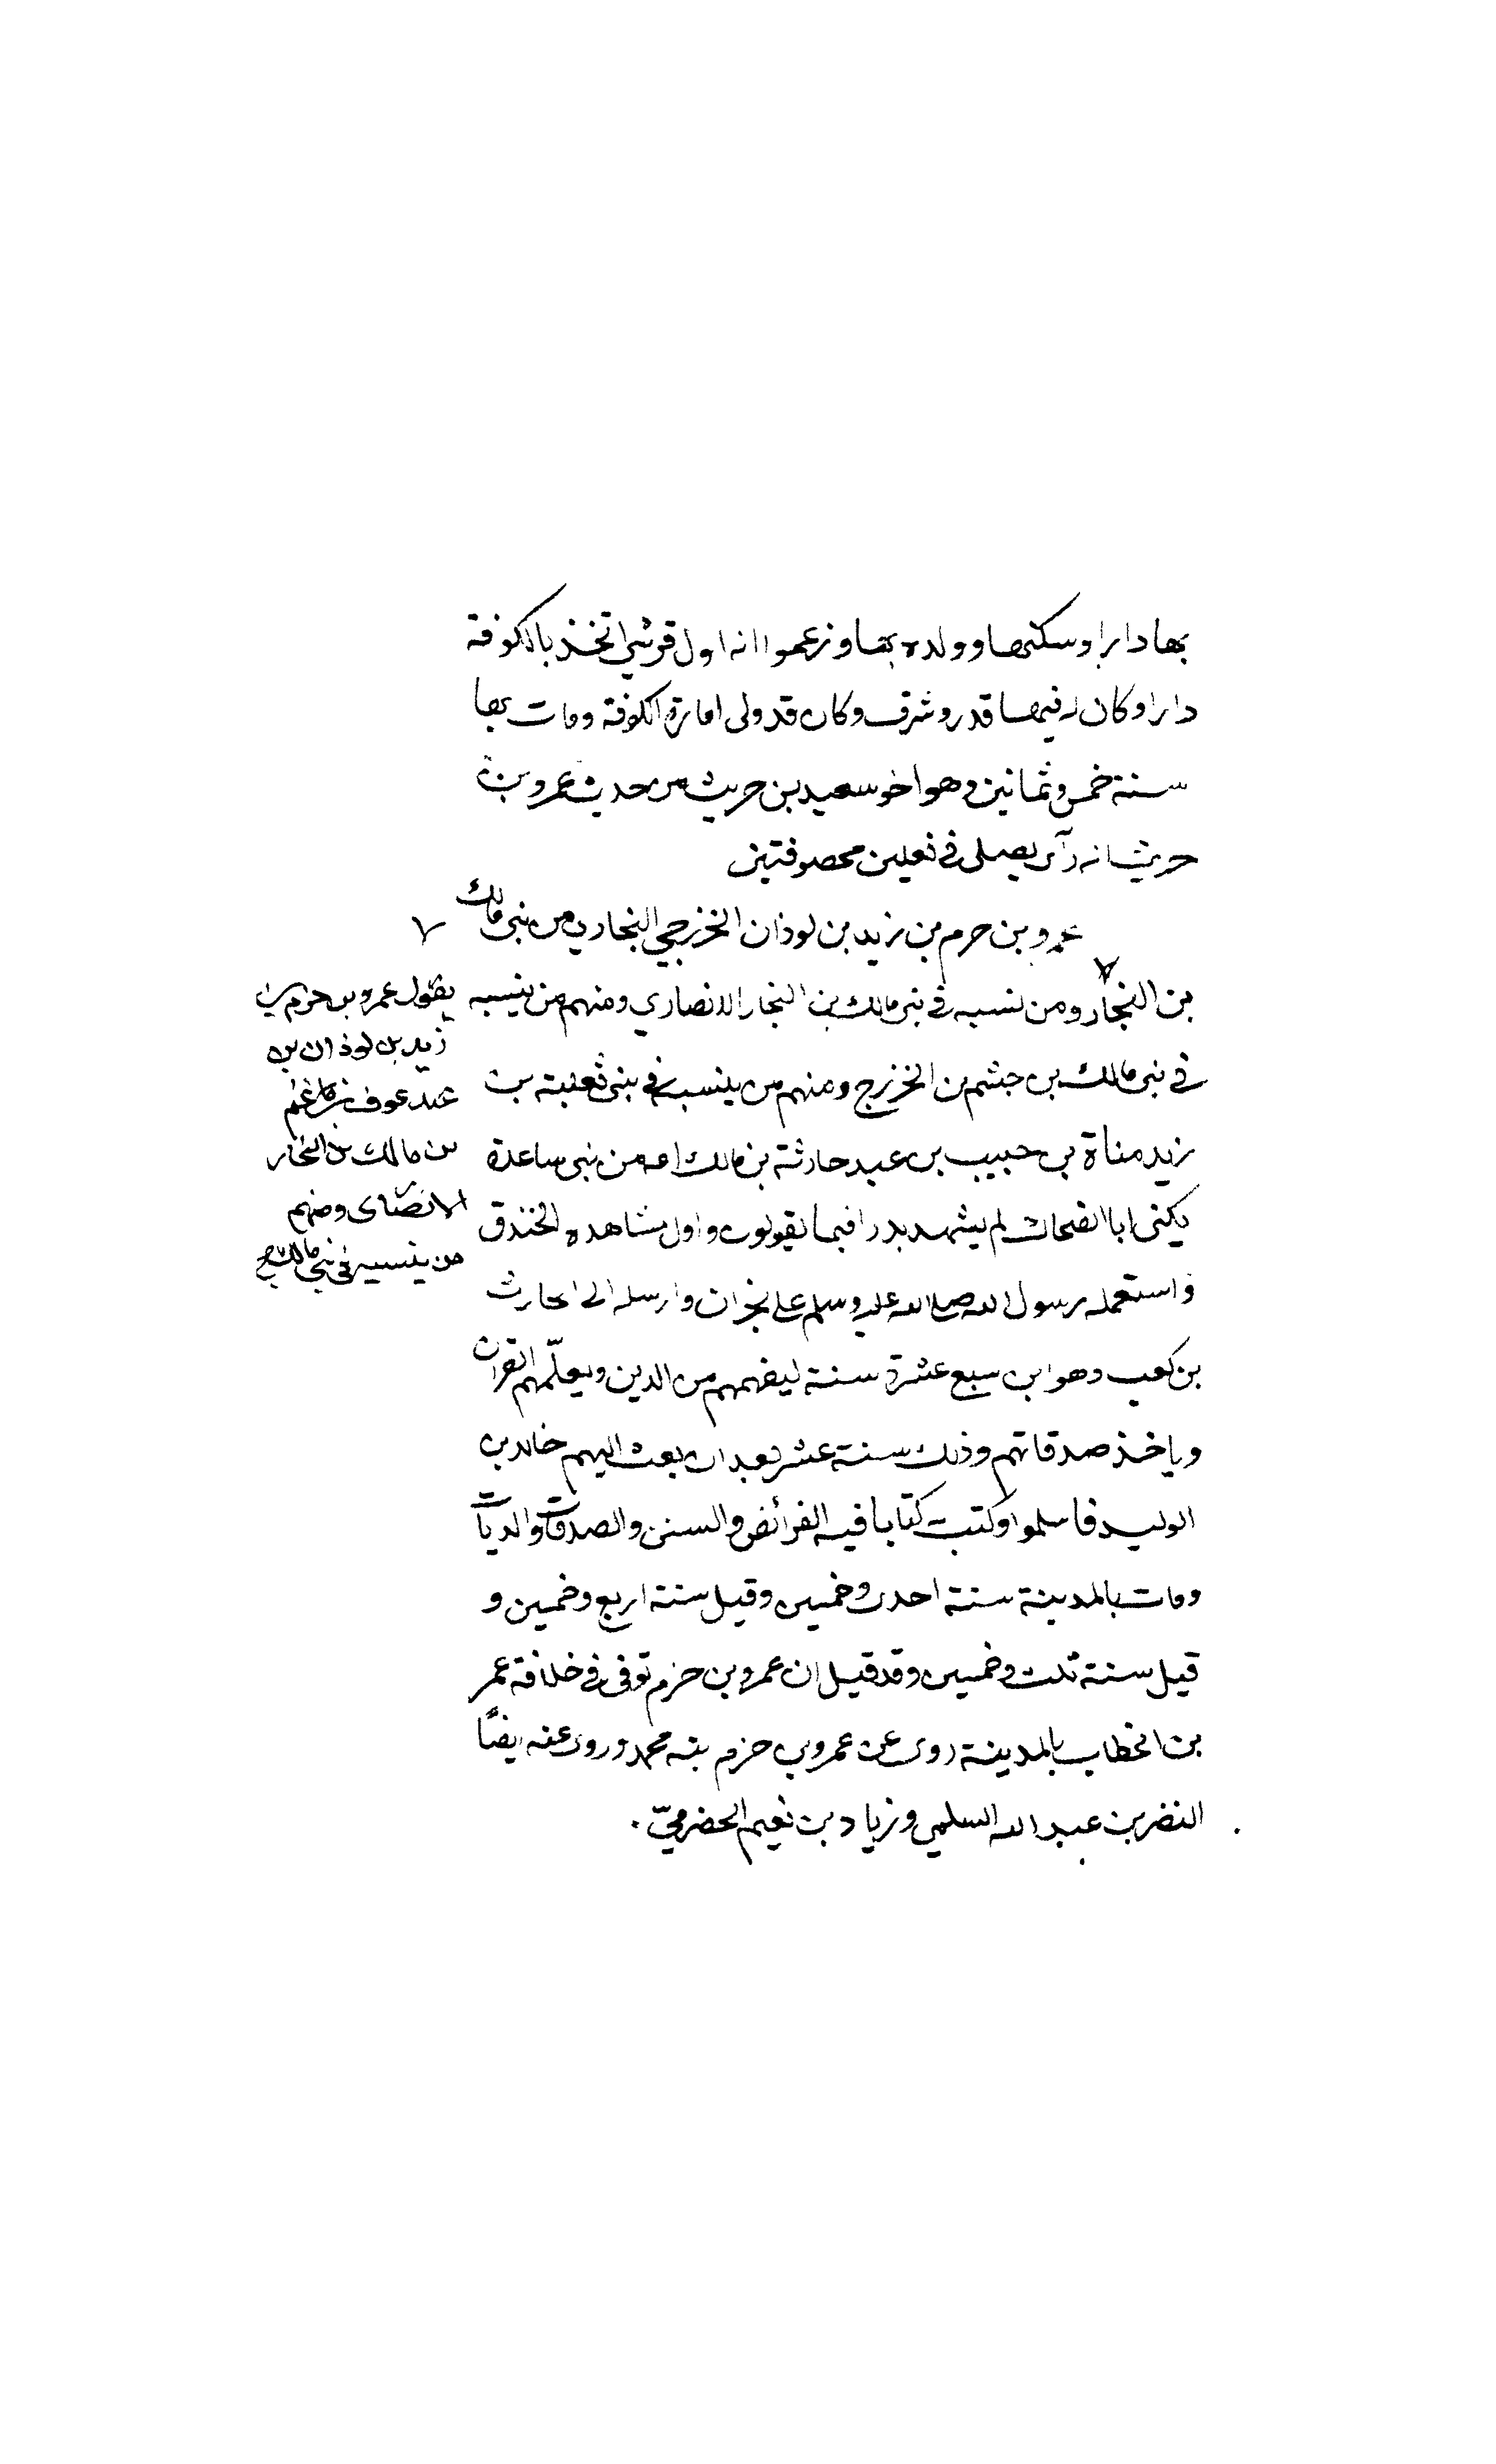 بها دارا وسكنها وولده بها وزعموا انه اول قرشي اتخذ بالكوفة
دارا وكان له فيها قدر وشرف وكان قد ولى امارة الكوفة ومات بها
سنة خمس وثمانين وهو اخو سعيد بن حريث من حديث عمرو بن
حريث انه رآى يصلى في نعلين مخصوفتين
عمرو بن حزم بن زيد بن لوذان الخزرجي النجاري من بنى مالك
بن النجار ومن نسبه في بنى مالك بن النجار الانصاري ومنهم من ينسبه
في بنى مالك بن جشم بن الخزرج ومنهم من ينسبه في بنى ثعلبة بن
زيد مناة بن حبيب بن عبد حارثة بن مالك امه من بنى ساعدة
يكنى ابا الضحاك لم يشهد بدرا فيما يقولون واول مشاهده الخندق
واستعمله رسول الله صلى الله عليه وسلم على نجران وارسله الى الحارث
بن كعب وهو ابن سبع عشرة سنة ليفهمهم من الدين ويعلّمهم القران
وياخذ صدقاتهم وذلك سنة عشر بعد ان بعث اليهم خالد بن
الوليد فاسلموا وكتب كتابا فيه الفرائض والسنن والصدقات والديات
ومات بالمدينة سنة احدى وخمسين وقيل سنة اربع وخمسين و
قيل سنة ثلث وخمسين وقد قيل ان عمرو بن حزم توفى في خلافة عمر
بن الخطاب بالمدينة روى عن عمرو بن حزم بنه محمد وروى عنه ايضًا
النضر بن عبد الله السلمي وزياد بن نعيم الحضرميّ .
يقول عمرو بن حزم بن
زيد بن لوذان بن
عبد عوف بن غنم
بن مالك بن النجار
الانصارى ومنهم
من ينسبه في بنى مالك